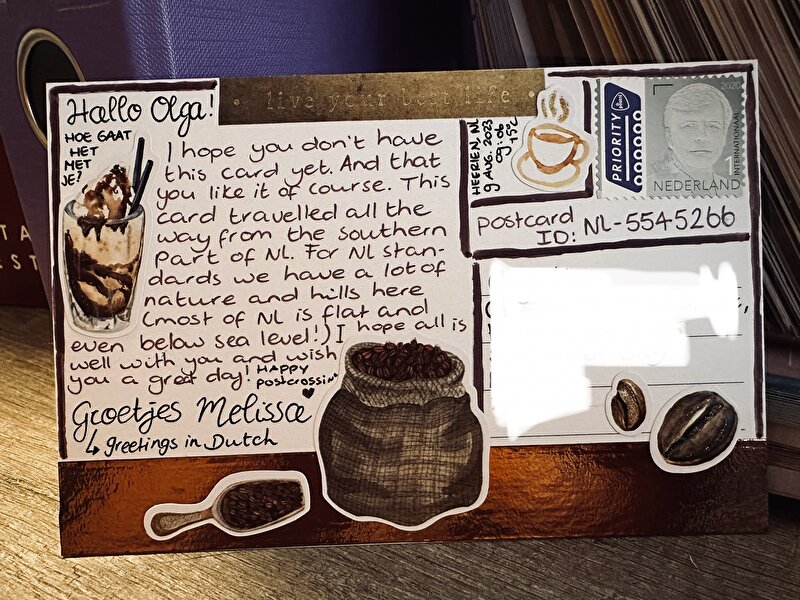 live your best life
Hallo Olga!
HOE GAAT
HET
MET
JE?
I hope you don't have
this card yet. And that
you like it of course. This
card travelled all the
way from the southern
part of NL. For NL stan-
dards we have a lot of
nature and hills here
(most of NL is flat and
even below sea level!) I hope all is
well with you and wish
you a great day! HAPPY
postcrossin'
Groetjes Melissa
↳ greetings in Dutch
HEERLEN, NL
9 AUG. 2023
09:06
15°C
PRIORITY
2020
INTERNATIONAAL
NEDERLAND
postcard
ID: NL-5545266